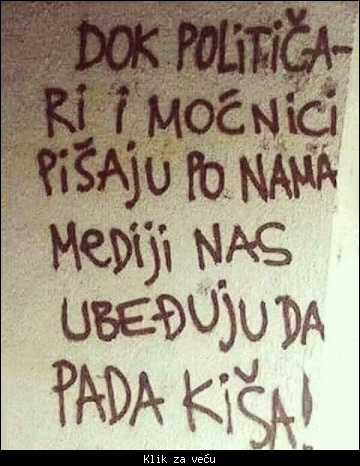 DOK POLITIČA-
RI I MOĆNICI
PIŠAJU PO NAMA
MEDIJI NAS
UBEĐUJU DA
PADA KIŠA!
Klik za veću